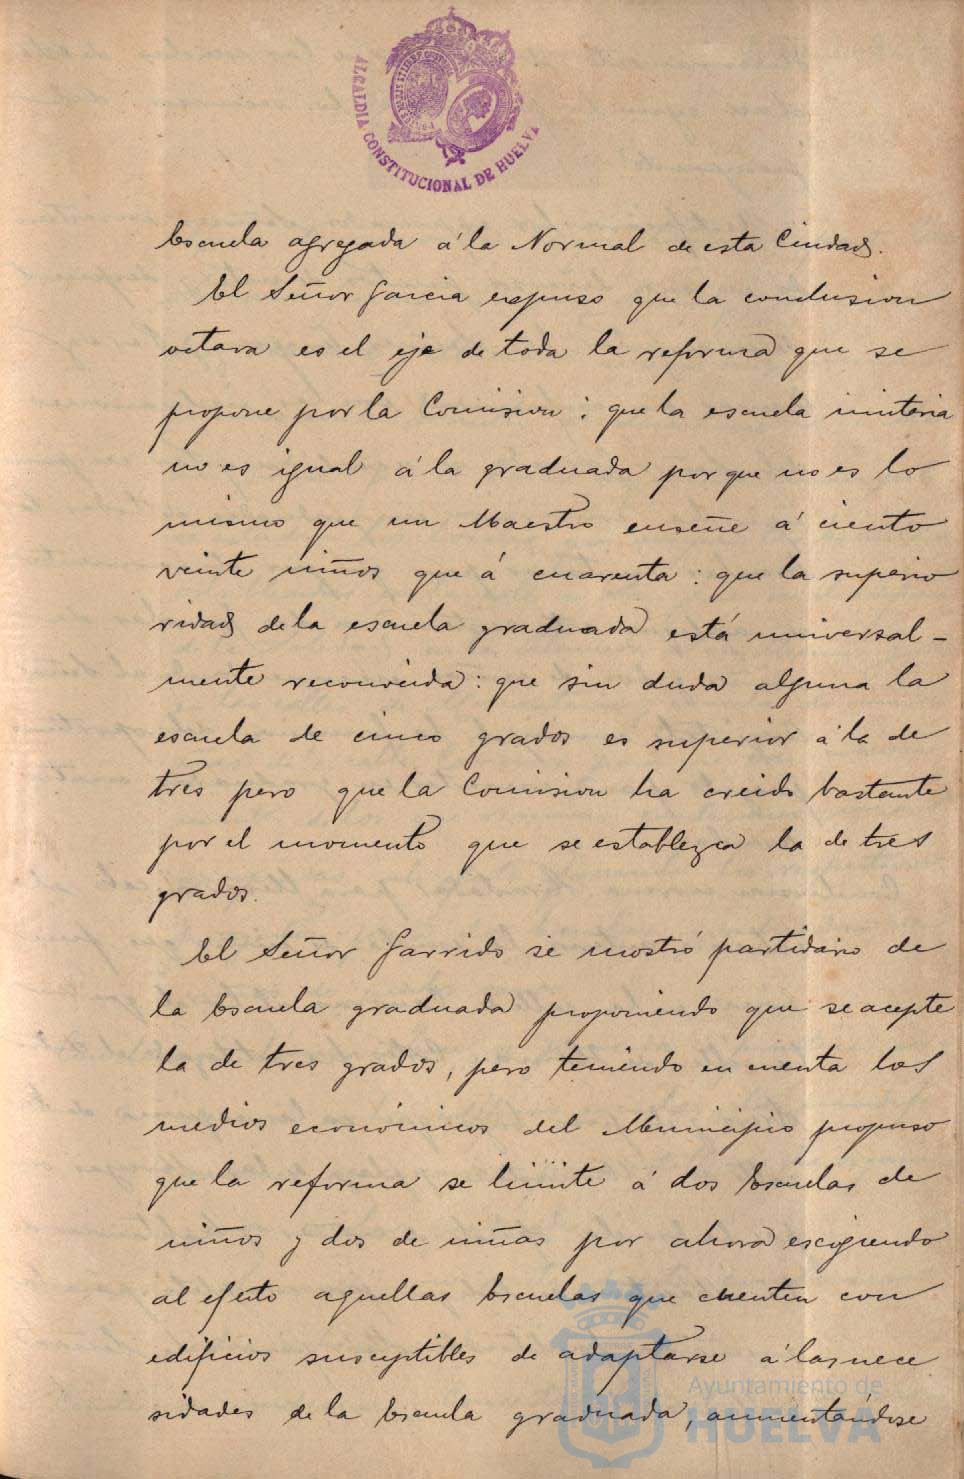 ALCALDIA CONSTITUCIONAL DE HUELVA
Escuela agregada á la Normal de esta Ciudad.
El Señor Garcia expuso que la conclusion
octava es el eje de toda la reforma que se
propone por la Comision: que la escuela unitaria
no es igual á la graduada porque no es lo
mismo que un Maestro enseñe á ciento
veinte niños que á cuarenta: que la superio
ridad de la escuela graduada está universal-
mente reconocida: que sin duda alguna la
escuela de cinco grados es superior á la de
tres pero que la Comision ha creido bastante
por el momento que se establezca la de tres
grados.
El Señor Garrido se mostró partidario de
la Escuela graduada proponiendo que se acepte
la de tres grados, pero teniendo en cuenta los
medios económicos del Municipio propuso
que la reforma se limite á dos Escuelas de
niños y dos de niñas por ahora escogiendo
al efecto aquellas Escuelas que cuenten con
edificios susceptibles de adaptarse á las nece
sidades de la Escuela graduada, aumentándose
Ayuntamiento de
HUELVA